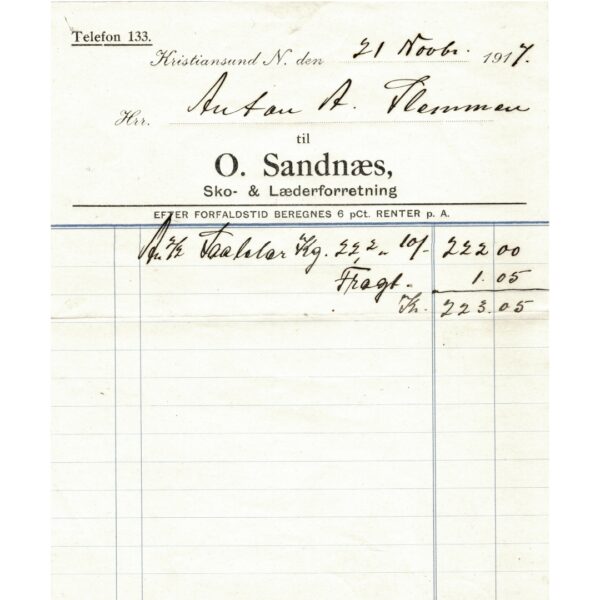 Telefon 133.
Kristiansund N. den 21 Novbr. 1917.
Hrr. Anton A. Flemmen
til
O. Sandnæs,
Sko- & Læderforretning
EFTER FORFALDSTID BEREGNES 6 pCt. RENTER p. A.
Kg. 22,2 " 10/- 222 00
Fragt. 1.05
Kr. 223.05